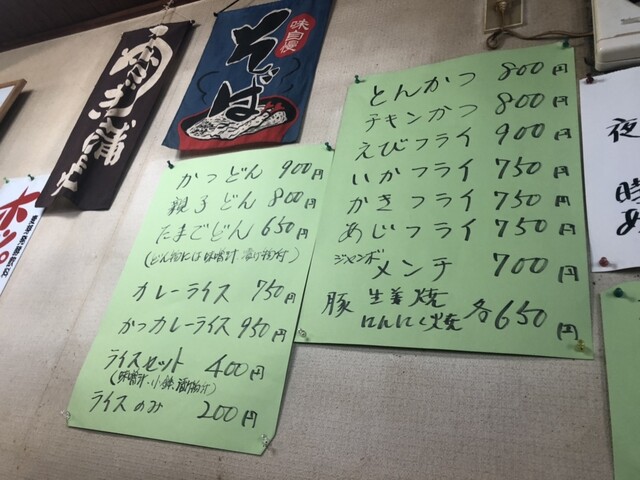 味自慢
そば
かつどん 900円
親子どん 800円
たまごどん 650円
(どん物には味噌汁 漬け物付)
カレーライス 750円
かつカレーライス 950円
ライスセット 400円
(味噌汁、小鉢、漬物付)
ライスのみ 200円
とんかつ 800円
チキンかつ 800円
えびフライ 900円
いかフライ 750円
かきフライ 750円
あじフライ 750円
ジャンボ
メンチ 700円
豚 生姜焼
にんにく焼 各650円
ホッピ
夜
時